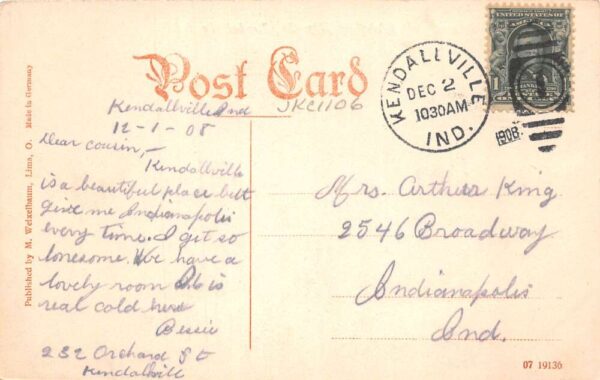 Post Card
JKC1106
KENDALLVILLE
DEC 2
1030AM
IND.
1908
UNITED STATES OF
1
Kendallville Ind
12-1-08
Dear cousin,—
Kendallville
is a beautiful place but
give me Indianapolis
every time. I get so
lonesome. We have a
lovely room It is
real cold here
Bessie
232 Orchard St
Kendallvill
Mrs. Arthur King
2546 Broadway
Indianapolis
Ind.
Published by M. Weixelbaum, Lima, O. Made in Germany
07 19136